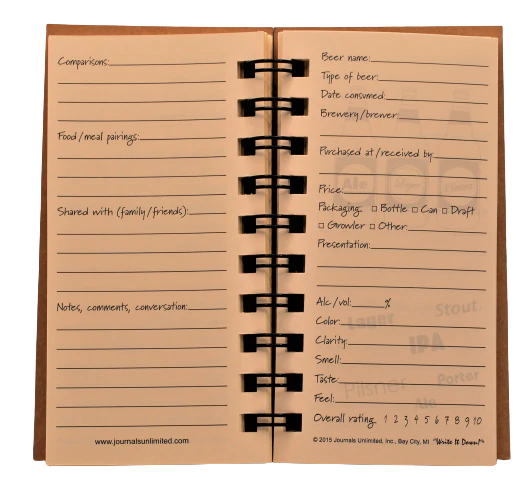 Comparisons:
Food/meal pairings:
Shared with (family/friends):
Notes, comments, conversation:
www.journalsunlimited.com
Beer name:
Type of beer:
Date consumed:
Brewery/brewer:
Purchased at/received by:
Ale
Price:
Packaging: □ Bottle □ Can □ Draft
□ Growler □ Other:
Presentation:
Alc/vol: %
Stout
Lager
Color:
IPA
Clarity:
Smell:
Porter
Taste:
Pilsner
Feel:
Ale
Overall rating: 1 2 3 4 5 6 7 8 9 10
© 2015 Journals Unlimited, Inc., Bay City, MI "Write It Down!"